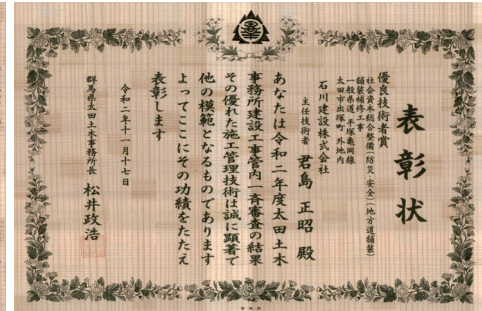 表彰状
優良技術者賞
社会資本総合整備(防災・安全)(地方道舗装)
舗装補修工事
一般県道 平塚亀岡線
太田市出塚町 外地内
石川建設株式会社
主任技術者 君島 正昭 殿
あなたは令和二年度太田土木
事務所建設工事管内一斉審査の結果
その優れた施工管理技術は誠に顕著で
他の模範となるものであります
よってここにその功績をたたえ
表彰します
令和二年十一月十七日
群馬県太田土木事務所長 松井政浩